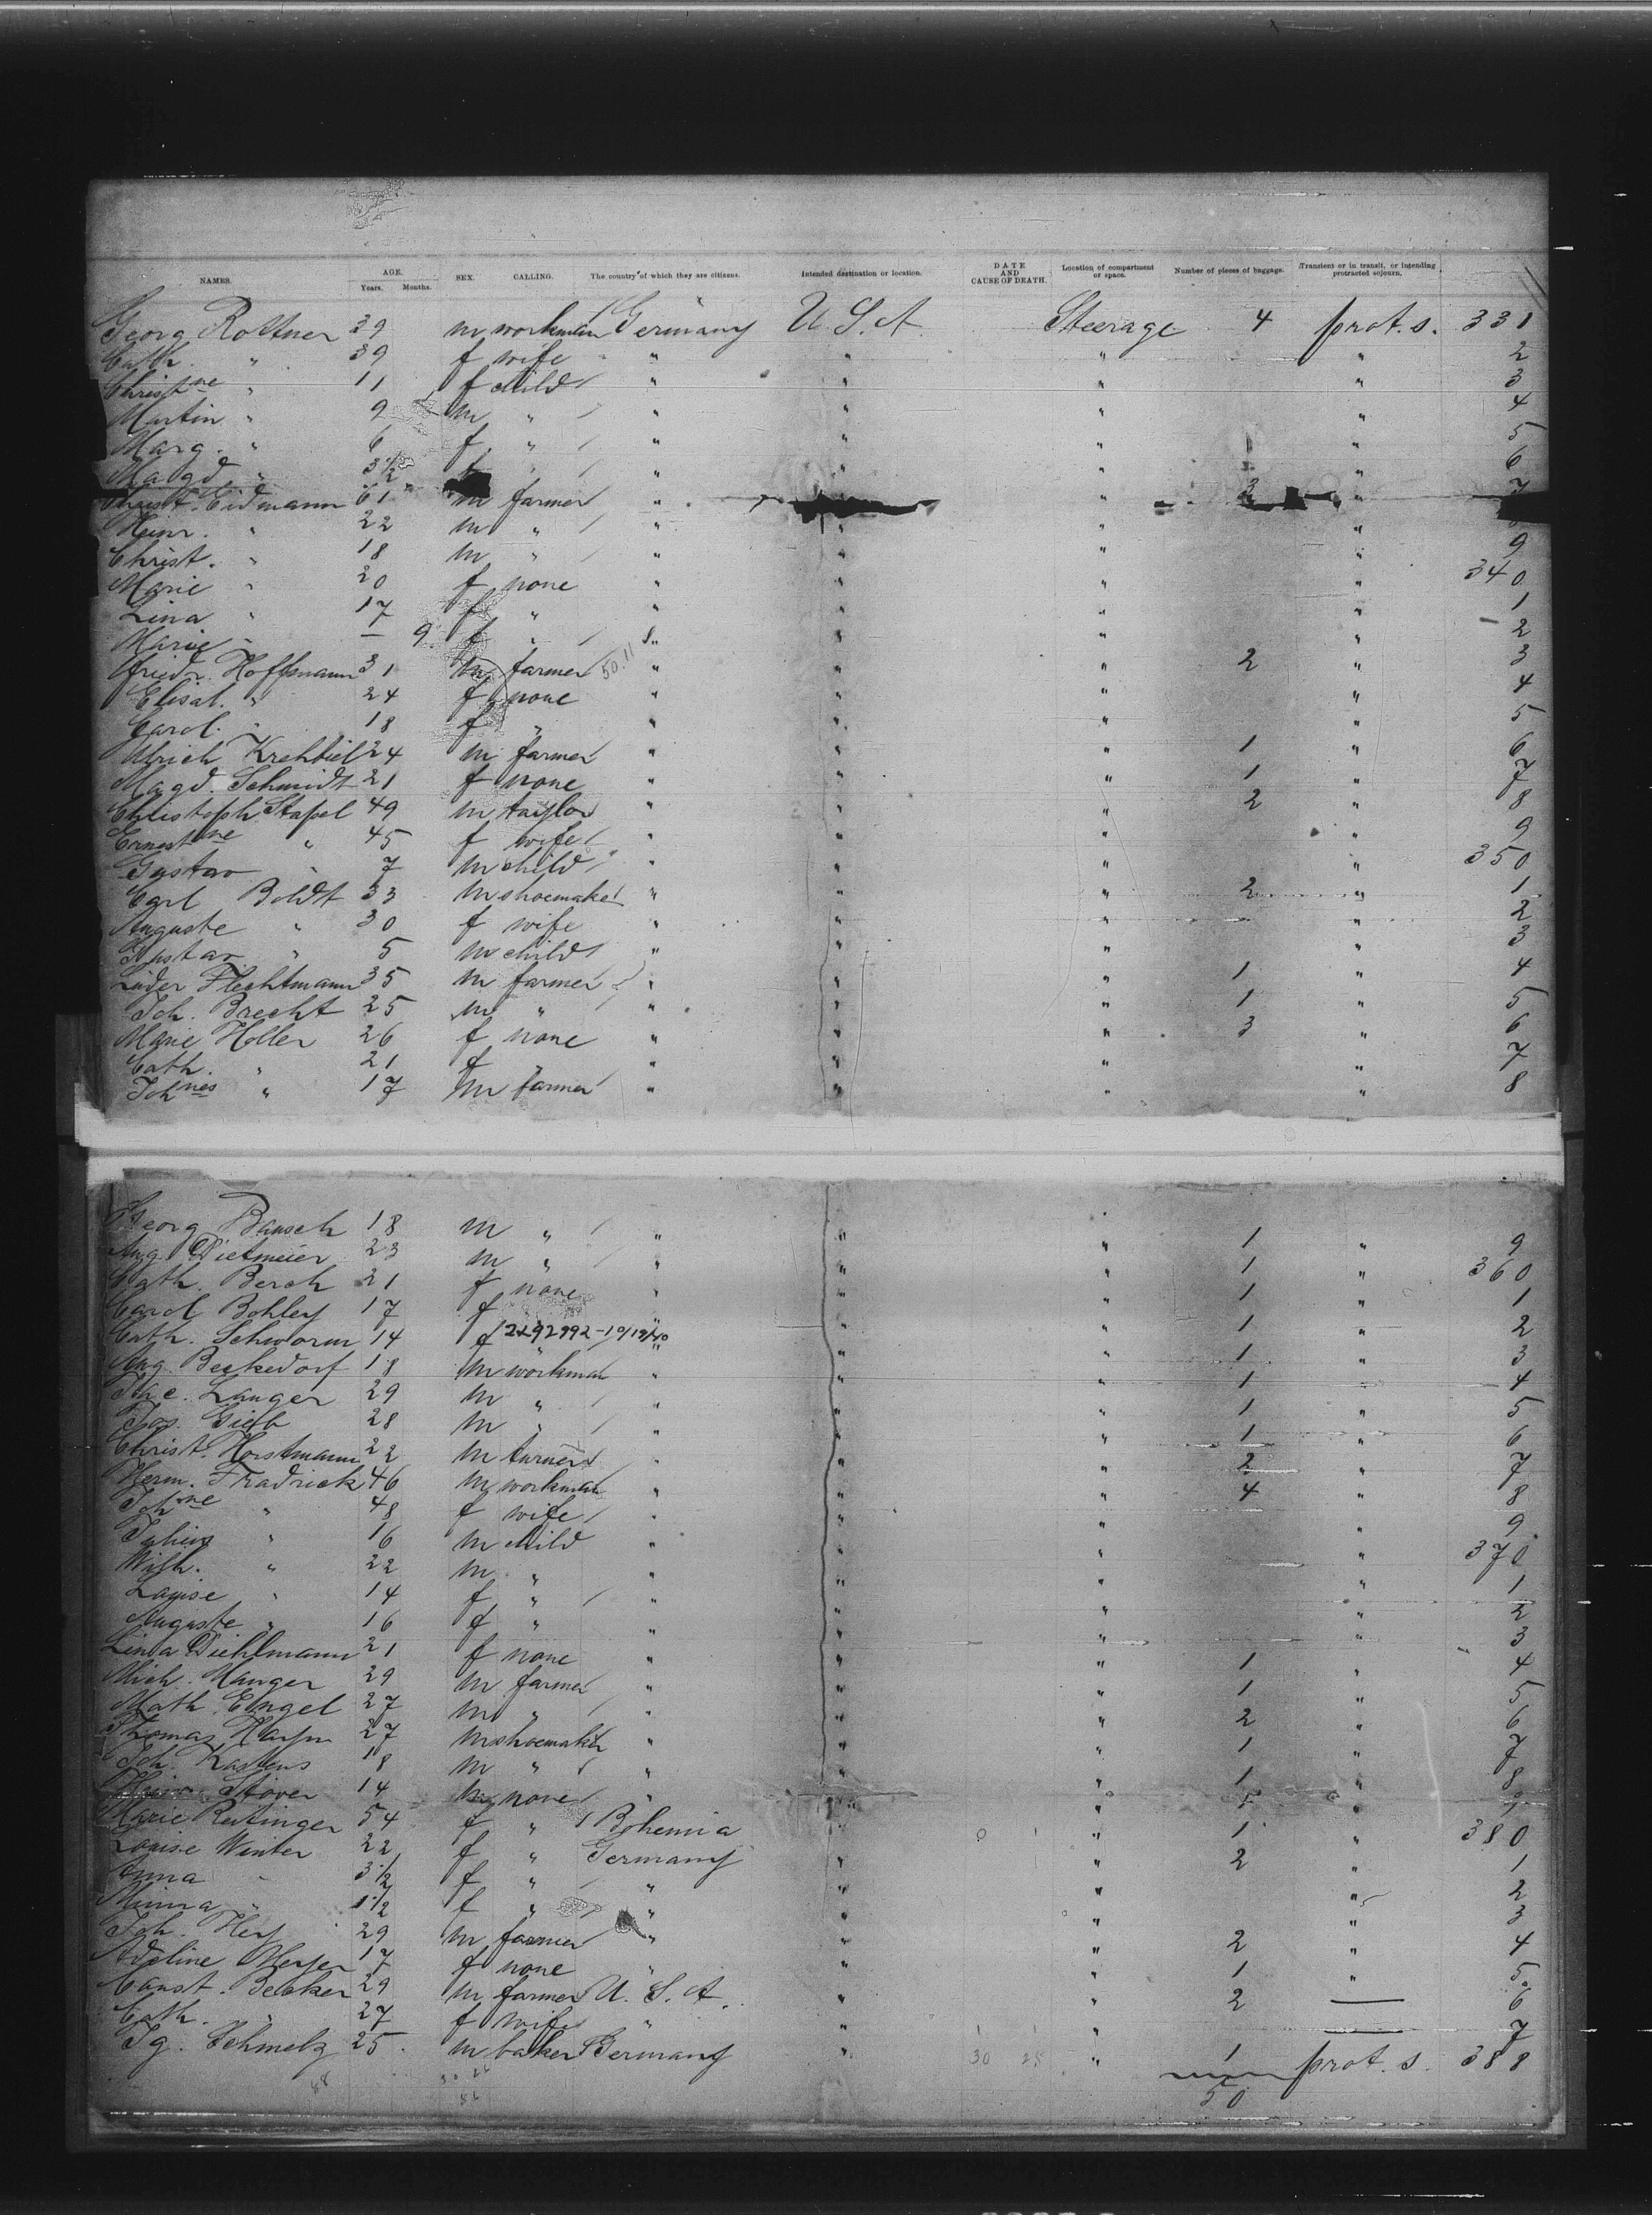 NAMES. AGE. Years. Months. SEX. CALLING. The country of which they are citizens. Intended destination or location. DATE AND CAUSE OF DEATH. Location of compartment or space. Number of pieces of baggage. Transient or in transit, or intending protracted sojourn.
Georg Rottner 39 m workman Germany U.S.A. Steerage 4 prot. s. 331
Cath. " 39 f wife " " " " 2
Christne " 11 f child " " " " 3
Martin " 9 m " " " " " 4
Marg. " 6 f " " " " " 5
Magd. " 3 1/2 " " " " " 6
Christ. Eidmann 61 m farmer " " 3 " 7
Heinr. " 22 m " " " " "
Christ. " 18 m " " " " " 9
Marie " 20 f none " " " " 340
Lina " 17 f " " " " " 1
Marie " — 9 f " " " " " 2
Friedr. Hoffmann 31 m farmer 50.11 " " " 2 " 3
Elisab. " 24 f none " " " " 4
Carol. " 18 f " " " " " 5
Ulrich Krehbiel 24 m farmer " " " 1 " 6
Magd. Schmidt 21 f none " " " 1 " 7
Christoph Stapel 49 m taylor " " " 2 " 8
Ernestne " 45 f wife " " " " 9
Gustav " 7 m child " " " " 350
Carl Boldt 33 m shoemaker " " " 2 " 1
Auguste " 30 f wife " " " " 2
Gustav " 5 m child " " " " 3
Lüder Flechtmann 35 m farmer " " " 1 " 4
Joh. Brecht 25 m " " " " 1 " 5
Marie Holler 26 f none " " " 3 " 6
Cath. " 21 f " " " " " 7
Johnes " 17 m farmer " " " " 8
Georg Bausch 18 m " " " " 1 " 9
Aug. Dietmeier 23 m " " " " 1 " 360
Cath. Berch 21 f none " " " 1 " 1
Carol Bohley 17 f " " " 1 " 2
Cath. Schworm 14 f 2x92992-10/19/40 " " " 1 " 3
Aug. Beckedorf 18 m workman " " " 1 " 4
Langer 29 m " " " " 1 " 5
Jos. 28 m " " " " 1 " 6
Christ. Horstmann 22 m turner " " " 2 " 7
Herm. Fradrick 46 m workman " " " 4 " 8
Johne " 48 f wife " " " " 9
Julius " 16 m child " " " " 370
Wilh. " 22 m " " " " " 1
Louise " 14 f " " " " " 2
Auguste " 16 f " " " " " 3
Lina Diehlmann 21 f none " " " 1 " 4
Mich. Manger 29 m farmer " " " 1 " 5
Math. Engel 27 m " " " " 2 " 6
Thomas 27 m shoemaker " " " 1 " 7
Joh. Kastens 18 m " " " " 1 " 8
Stöver 14 m none " " " " 9
Marie Reitinger 54 f " Bohemia " 1 " 380
Louise Winter 22 f " Germany " " 2 " 1
Anna " 3 1/2 f " " " " " 2
Minna " 1 1/2 f " " " " " 3
Joh. 29 m farmer " " " 2 " 4
Adeline Meyer 17 f none " " " 1 " 5
Const. Becker 29 m farmer U.S.A. " " 2 — 6
Cath. " 27 f wife " " " — 7
Jg. Schmelz 25 m baker Germany " 30 25 " 1 prot. s. 388
50